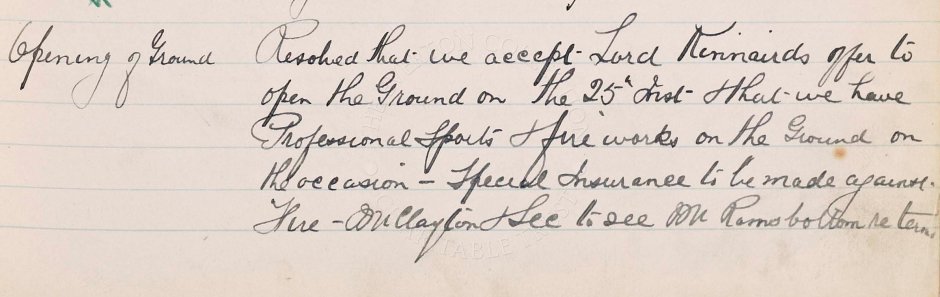 Opening of Ground Resolved that we accept Lord Kinnairds offer to
open the Ground on the 25th Inst & that we have
Professional Sports & fire works on the Ground on
the occasion - Special Insurance to be made against
Fire - Mr Clayton & Sec to see Mr Ramsbottom re terms